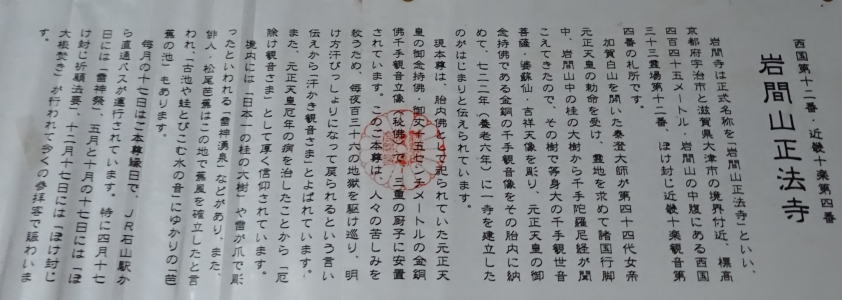 西国第十二番・近畿十楽第四番
岩間山正法寺
岩間寺は正式名称を「岩間山正法寺」といい、
京都府宇治市と滋賀県大津市の境界付近、標高
四百四十五メートル・岩間山の中腹にある西国
三十三霊場第十二番、ぼけ封じ近畿十楽観音第
四番の札所です。
加賀白山を開いた泰澄大師が第四十四代女帝
元正天皇の勅命を受け、霊地を求めて諸国行脚
中、岩間山中の桂の大樹から千手陀羅尼経が聞
こえてきたので、その樹で等身大の千手観世音
菩薩・婆蘇仙・吉祥天像を彫り、元正天皇の御
念持佛である金銅の千手観音像をその胎内に納
めて、七二二年（養老六年）に一寺を建立した
のがはじまりと伝えられています。
現本尊は、胎内佛として祀られていた元正天
皇の御念持佛・御丈十五センチメートルの金銅
佛千手観音立像（秘佛）で、三重の厨子に安置
されています。このご本尊は、人々の苦しみを
救うため、毎夜百三十六の地獄を駆け巡り、明
け方汗びっしょりになって戻られるという言い
伝えから「汗かき観音さま」とよばれています。
また、元正天皇厄年の病を治したことから「厄
除け観音さま」として厚く信仰されています。
境内には「日本一の桂の大樹」や雷が爪で彫
ったといわれる「雷神湧泉」などがあり、また、
俳人・松尾芭蕉はこの地で蕉風を確立したと言
われ、「古池や蛙とびこむ水の音」にゆかりの「芭
蕉の池」もあります。
毎月の十七日はご本尊縁日で、ＪＲ石山駅か
ら直通バスが運行されています。特に四月十七
日には「雷神祭」、五月と十月の十七日には「ぼ
け封じ祈願法要」、十二月十七日には「ぼけ封じ
大根焚き」が行われて多くの参拝客で賑わいま
す。